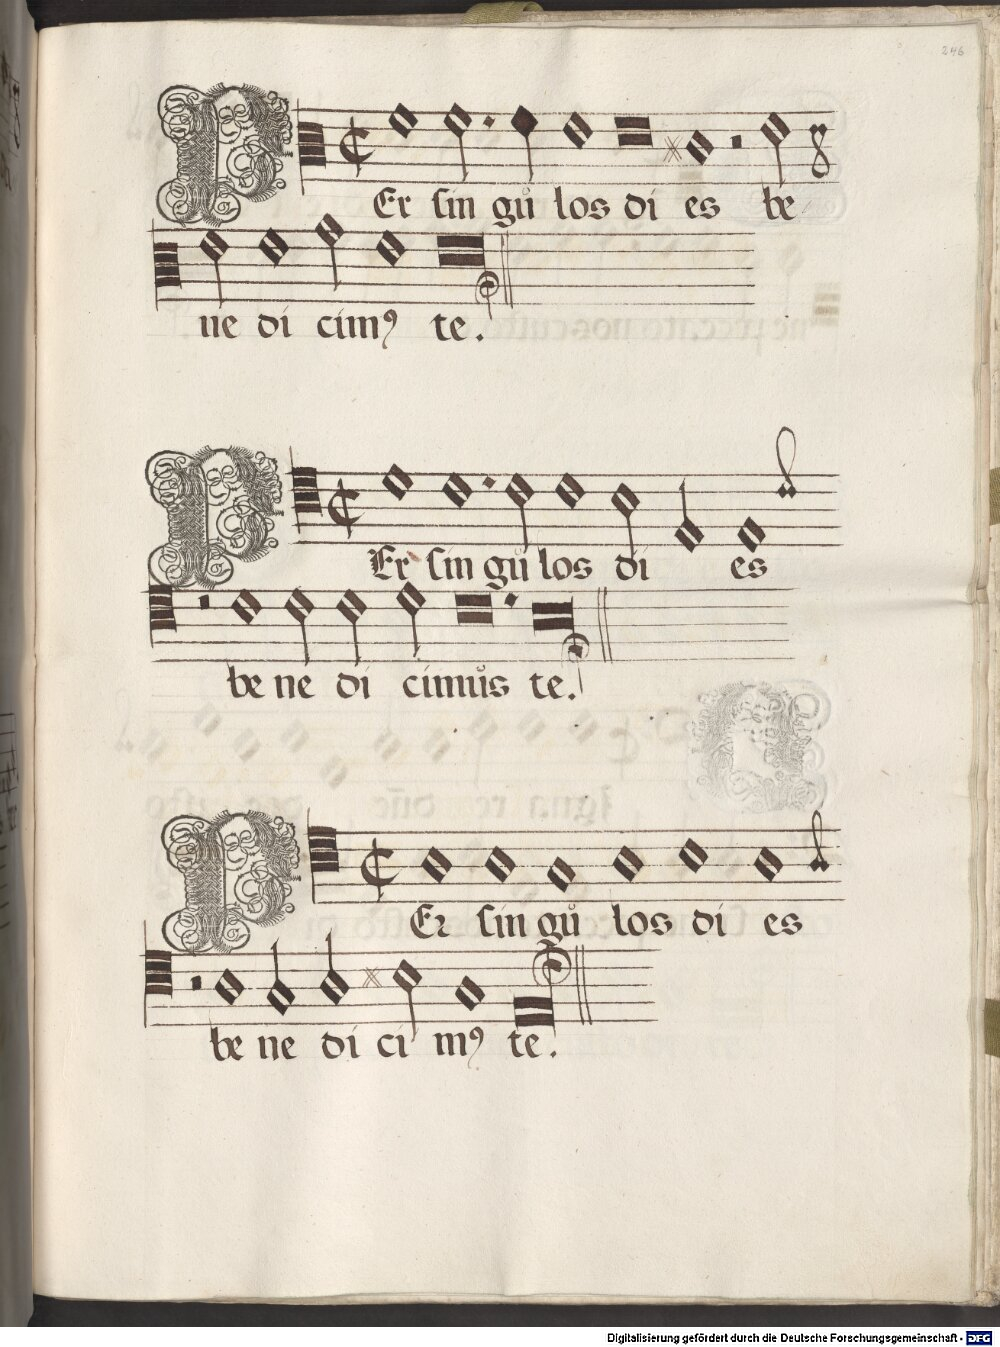 246
PEr sin gů los di es be
ne di cimꝰ te.
PEr sin gů los di es
be ne di cimůs te.
PEr sin gů los di es
be ne di ci mꝰ te.
Digitalisierung gefördert durch die Deutsche Forschungsgemeinschaft - DFG